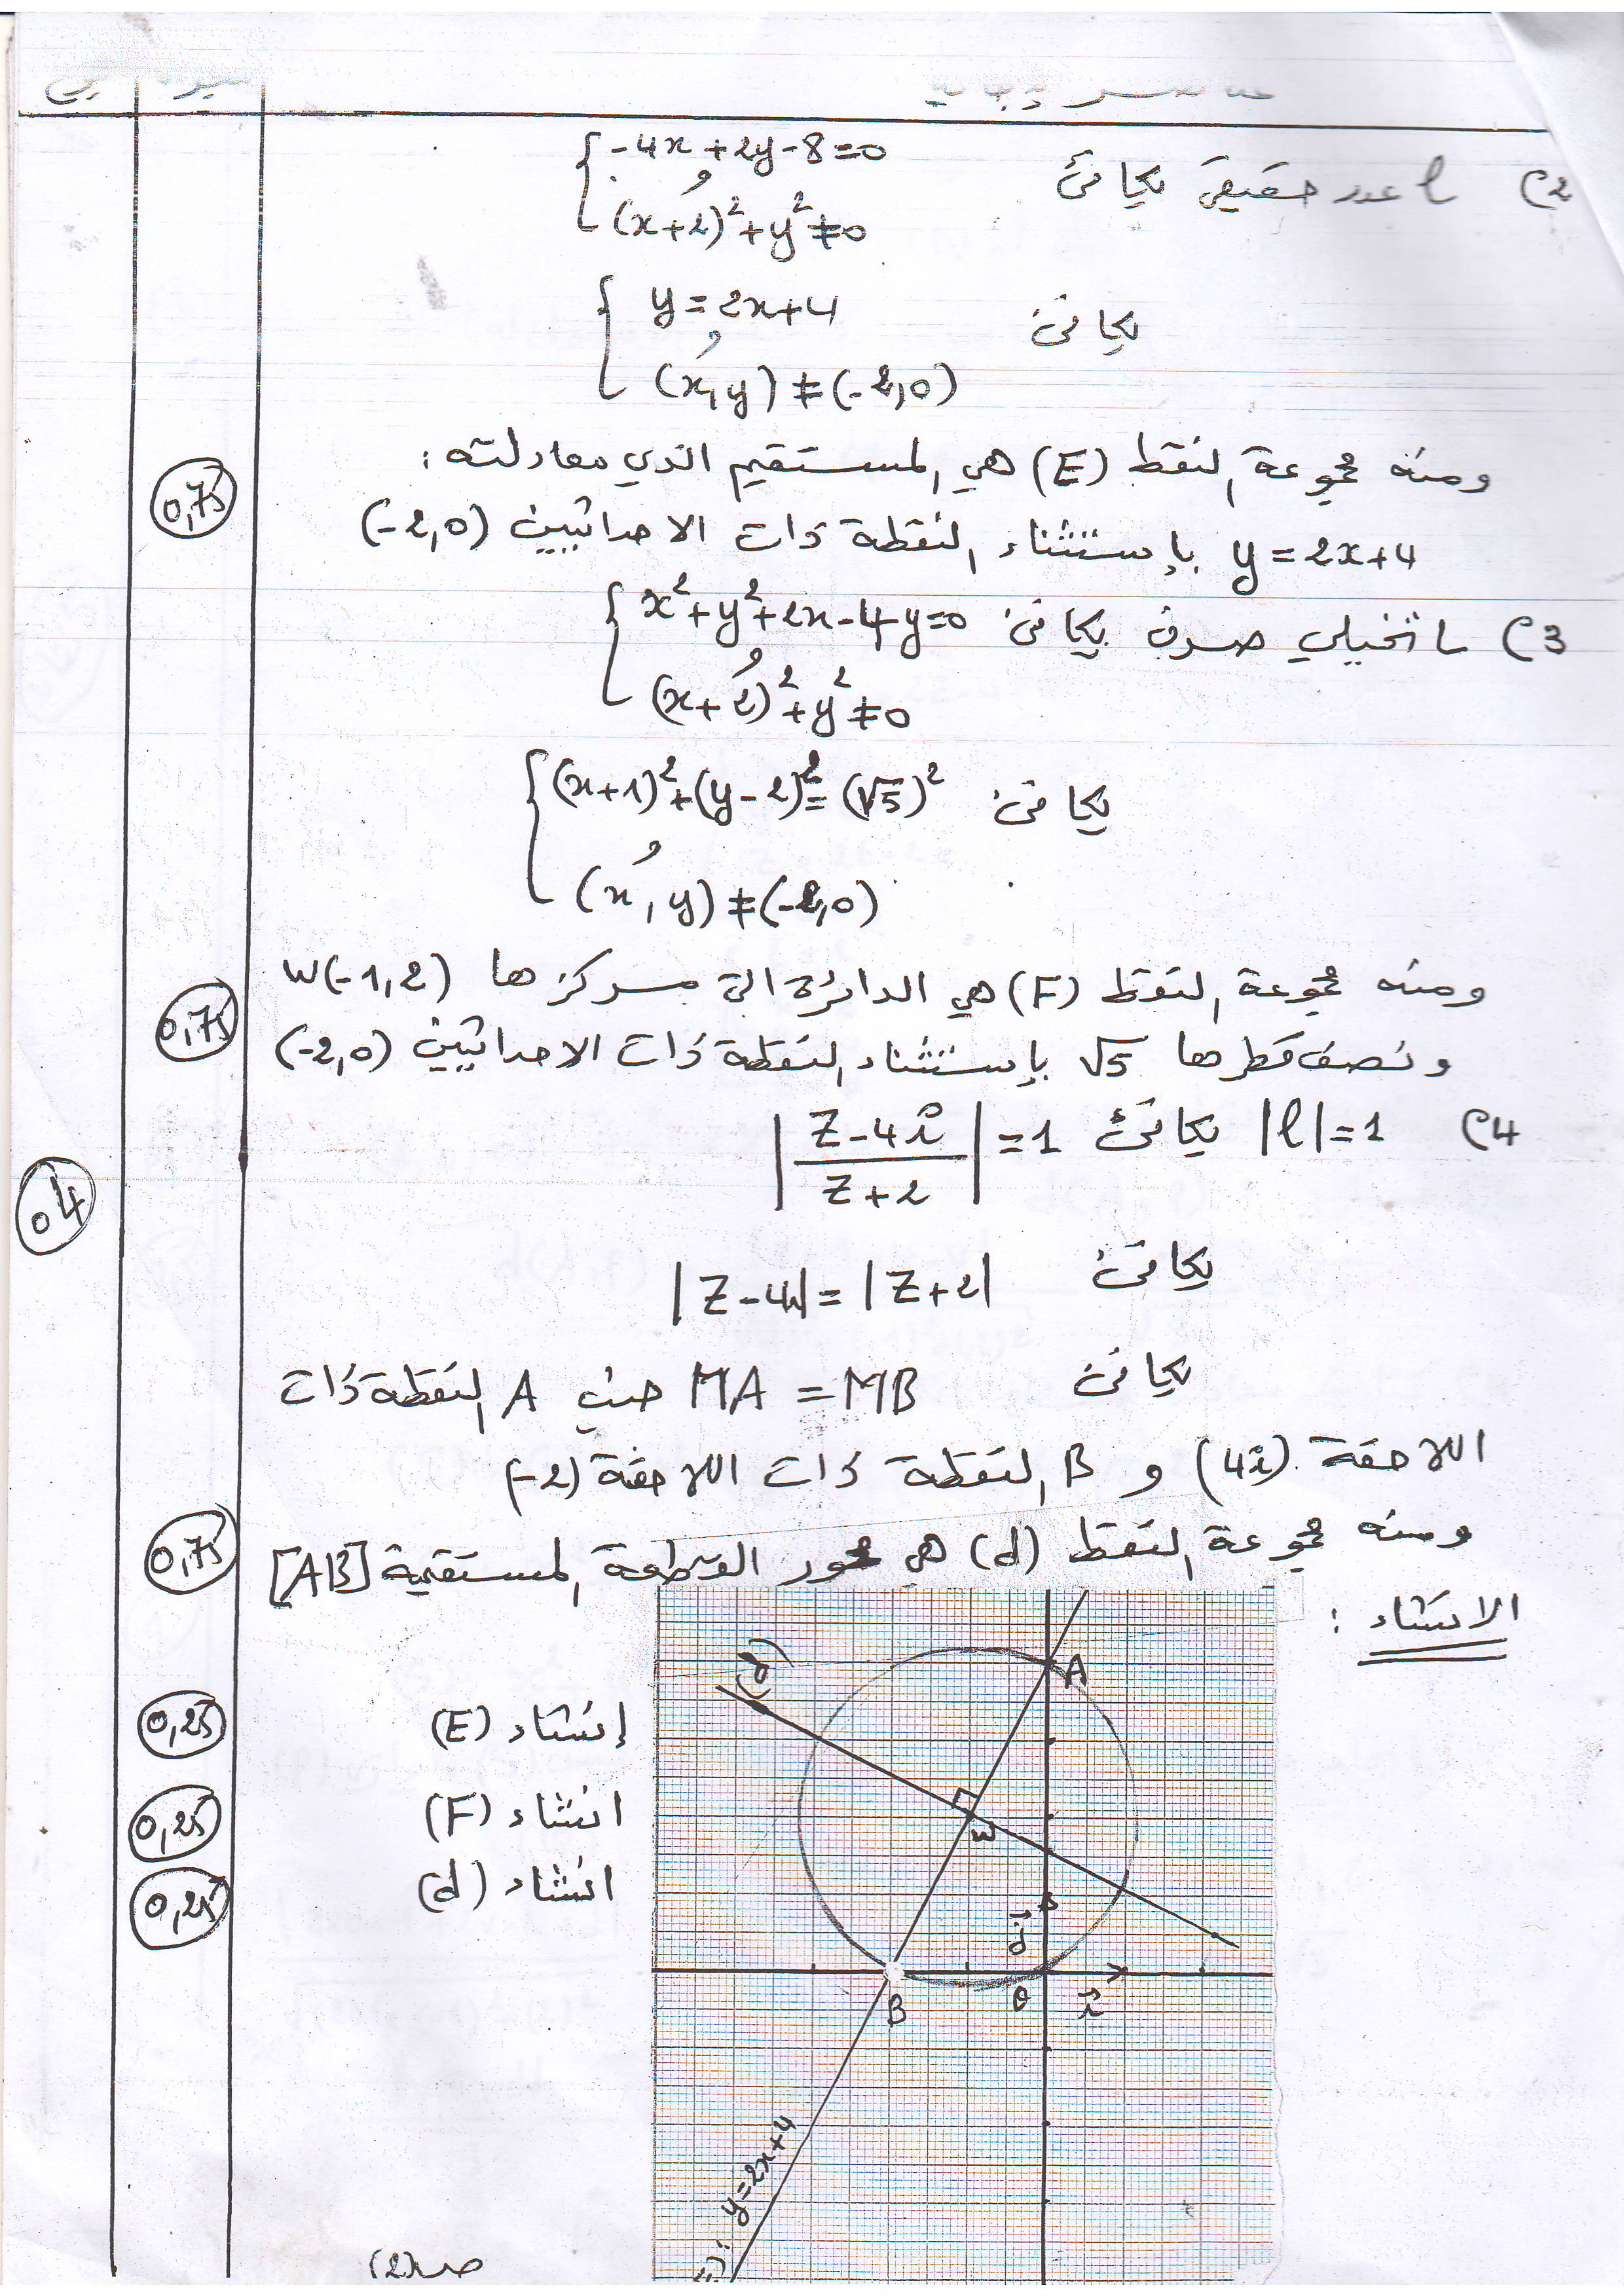 2) L عدد حقيقي يكافئ { -4x+2y-8=0 و (x+2)²+y²≠0
يكافئ { y=2x+4 و (x,y)≠(-2,0)
ومنه مجموعة النقط (E) هي المستقيم الذي معادلته:
0,75
y=2x+4 بإستثناء النقطة ذات الاحداثيين (-2,0)
3) L تخيلي صرف يكافئ { x²+y²+2x-4y=0 و (x+2)²+y²≠0
يكافئ { (x+1)²+(y-2)²=(√5)² و (x,y)≠(-2,0)
ومنه مجموعة النقط (F) هي الدائرة التي مركزها W(-1,2)
0,75
ونصف قطرها √5 بإستثناء النقطة ذات الاحداثيين (-2,0)
4) |L|=1 يكافئ |(Z-4i)/(Z+2)|=1
04
يكافئ |Z-4i|=|Z+2|
يكافئ MA=MB حيث A النقطة ذات
اللاحقة (4i) و B النقطة ذات اللاحقة (-2)
ومنه مجموعة النقط (d) هي محور القطعة المستقيمة [AB]
0,75
الانشاء:
إنشاء (E)
0,25
انشاء (F)
0,25
انشاء (d)
0,25
(d)
A
W
j
B
O
i
y=2x+4
ص(2)